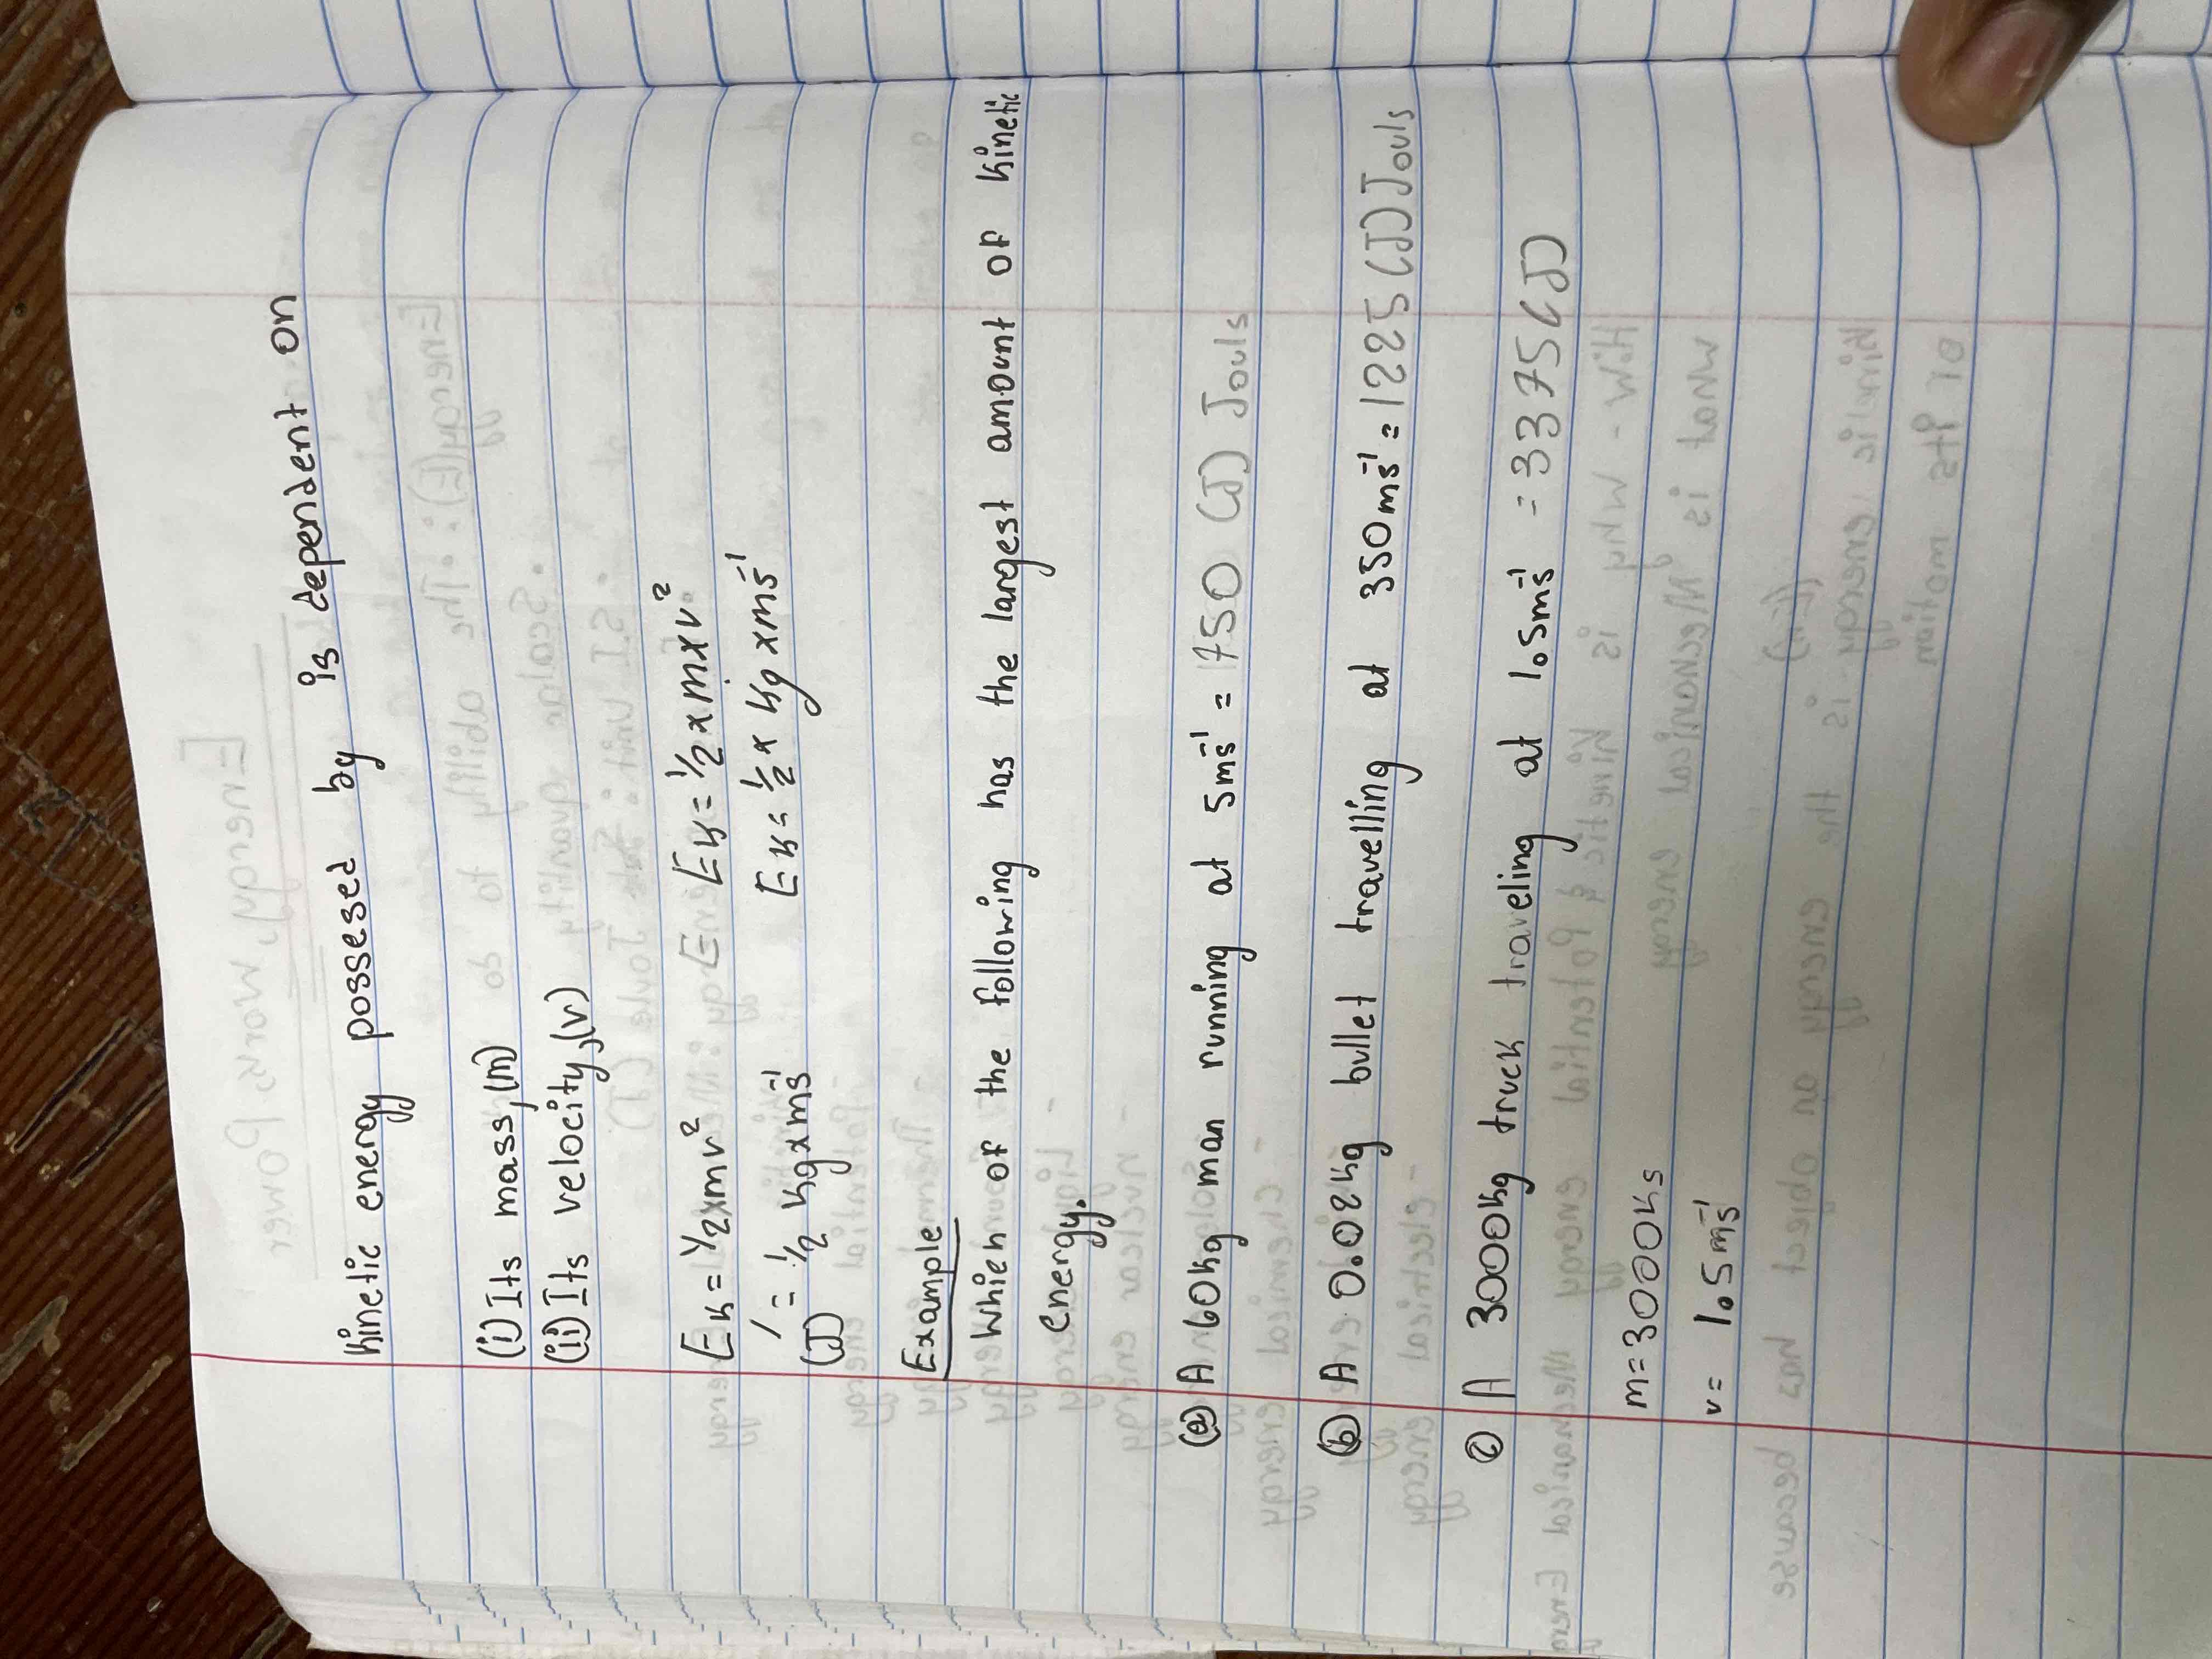 Kinetic energy possesed by is dependent on
(i) Its mass, (m)
(ii) Its velocity, (v)
Ek = 1/2xmv² E Ek = 1/2 x m x v²
(J) = 1/2 kg x ms⁻¹ Ek = 1/2 x kg x ms⁻¹
Example
Which of the following has the largest amount of kinetic
energy.
(a) A 60kg man running at 5ms⁻¹ = 750 (J) Jouls
(b) A 0.02kg bullet travelling at 350ms⁻¹ = 1225 (J) Jouls
(c) A 3000kg truck traveling at 1.5ms⁻¹ = 3375 (J)
m = 3000kg
v = 1.5ms⁻¹